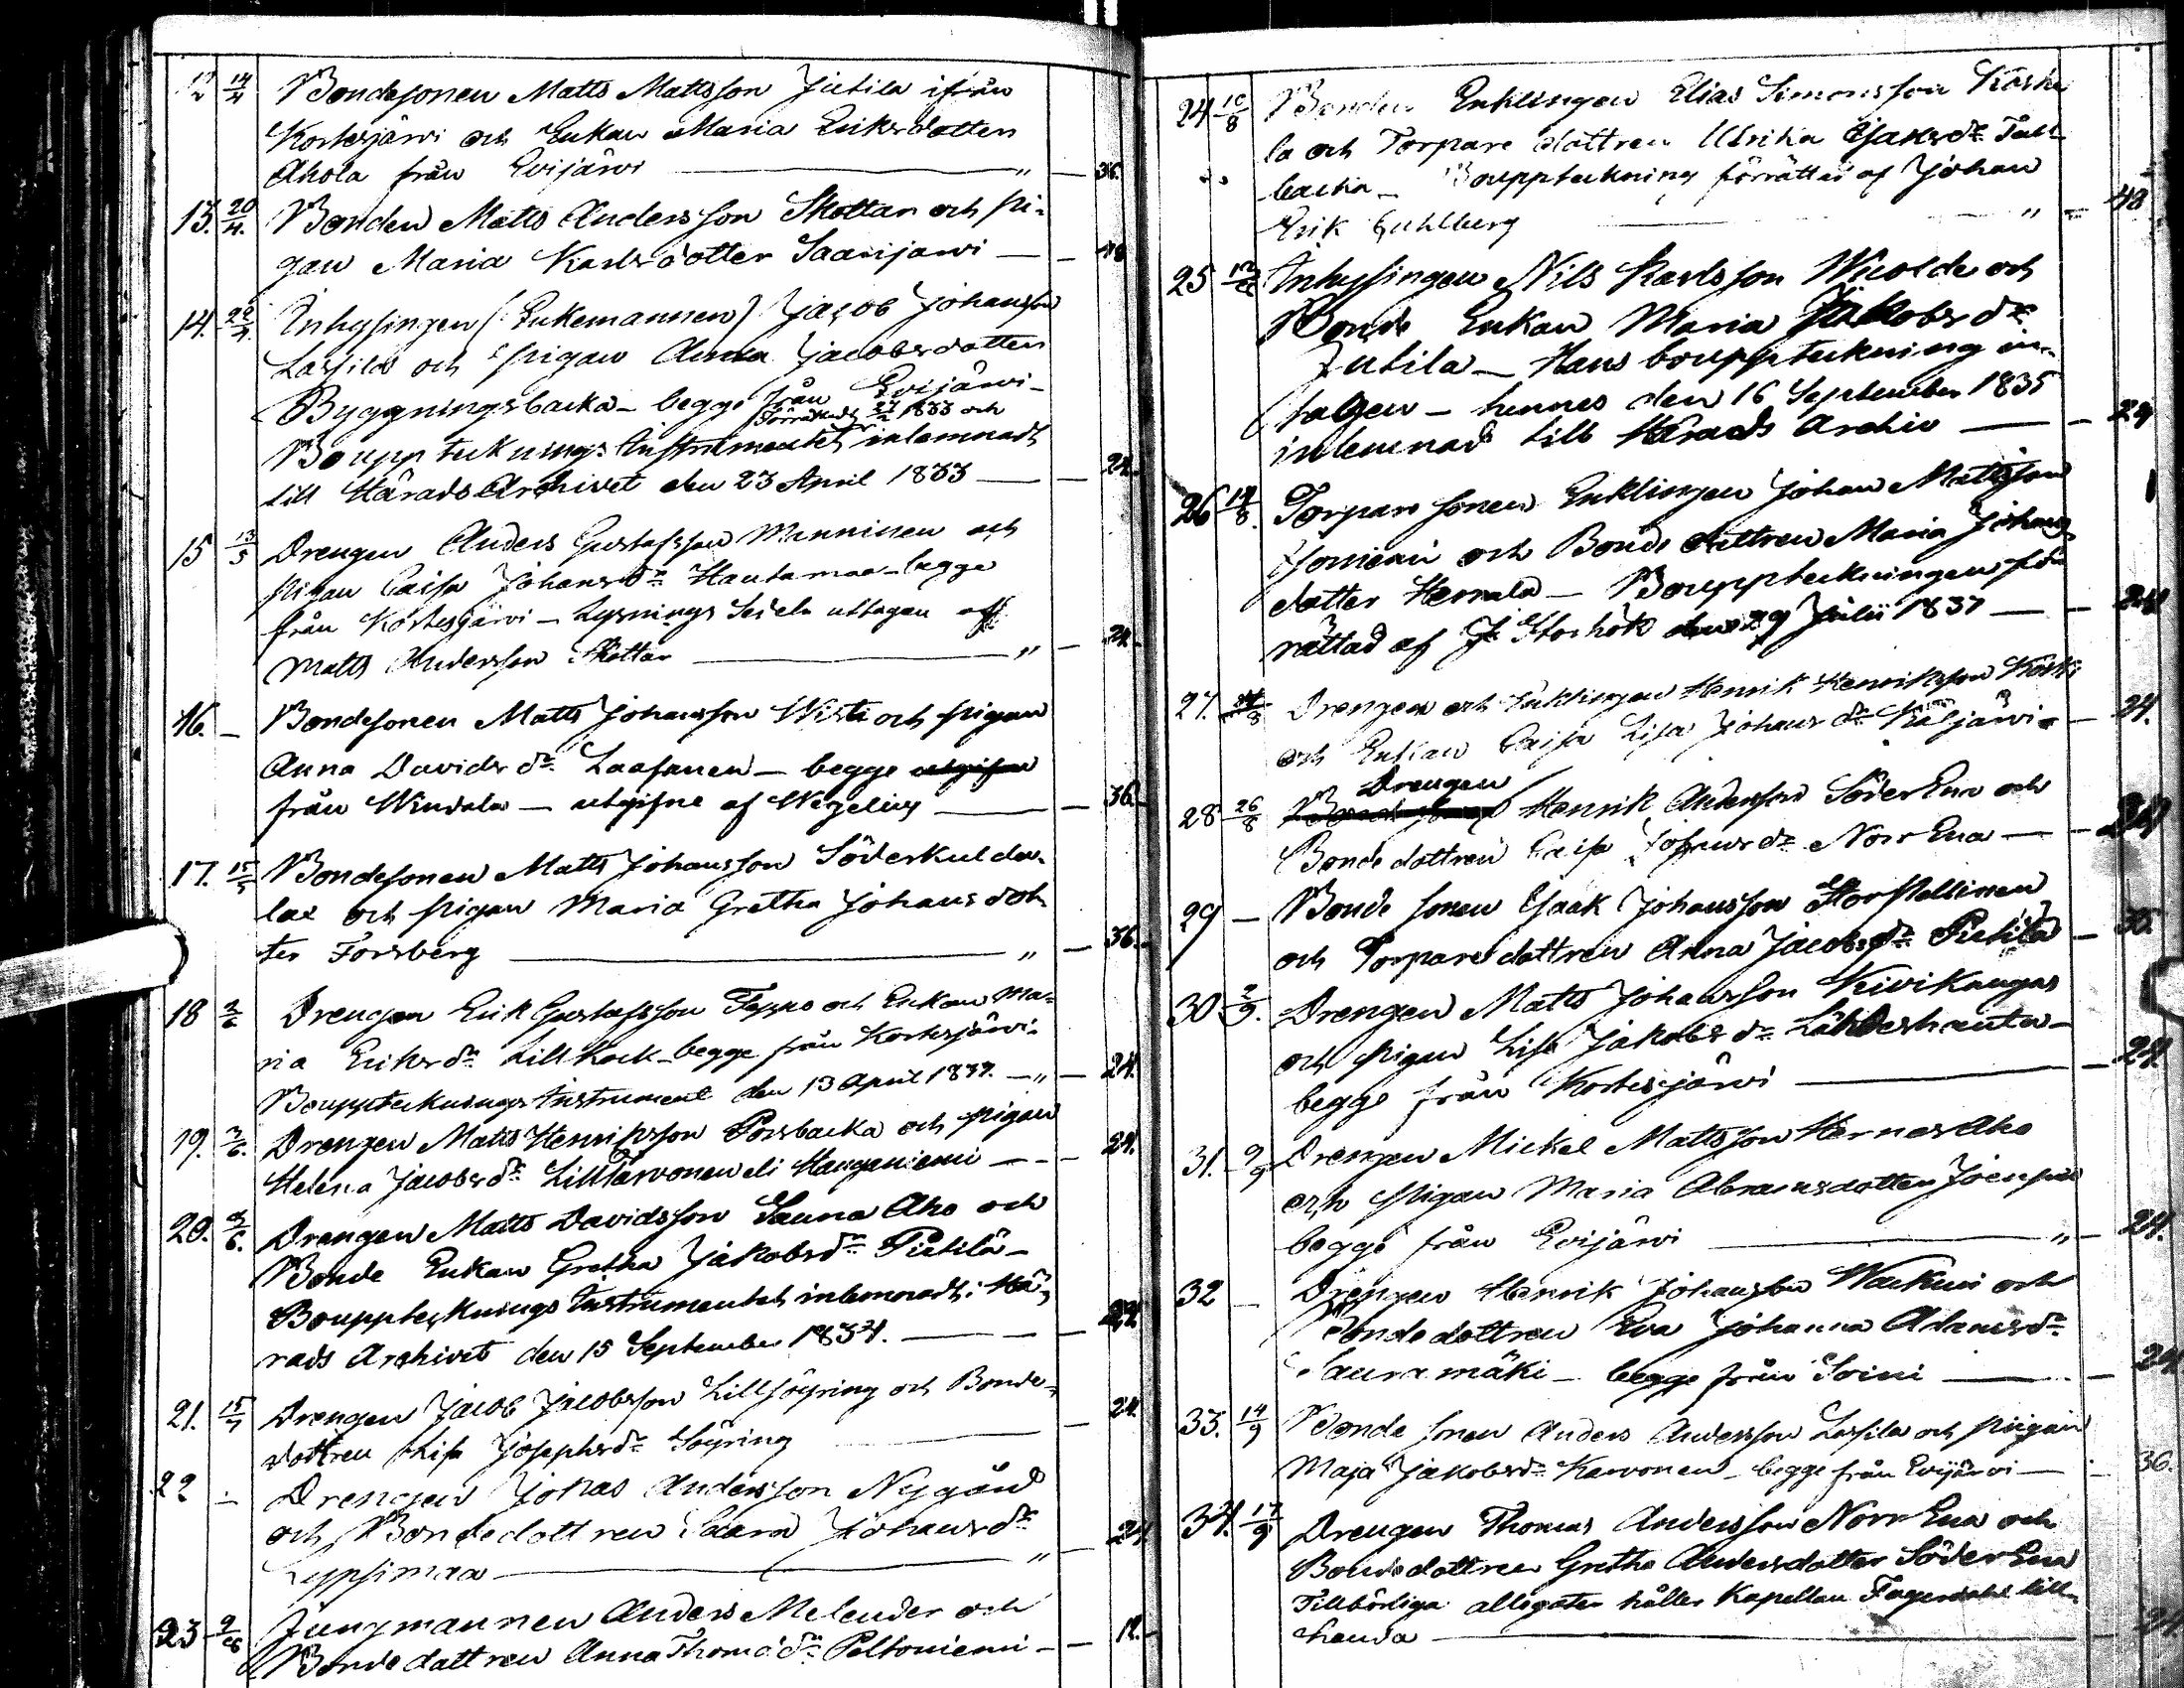 12 14/4 Bondesonen Matts Mattsson Jutila ifrån
Kortesjärvi och Enkan Maria Eriksdotter
Ahola från Evijärvi — " — 36.
13. 20/4. Bonden Matts Andersson Skottar och pi-
gan Maria Karlsdotter Saarijärvi —
14. 22/4. Inhysingen (Enkemannen) Jacob Johansson
Lassila och pigan Anna Jacobsdotter
Byggningsbacka — begge från Evijärvi —
förrättade 1833 och
Bouppteknings Instrumentet inlemnadt
till Härads Archivet den 23 April 1833 — — 24.
15 13/5 Drengen Anders Gustafsson Manninen och
pigan Caisa Johansdr Hautamaa — begge
från Kortesjärvi — Lysnings Sedeln uttagen af
Matts Andersson Skottar — " — 24.
16. — Bondesonen Matts Johansson Wisti och pigan
Anna Davidsdr Laasanen — begge
från Windala — utgifne af Wegelius — — 36.
17. 15/5 Bondesonen Matts Johansson Söderkulda-
lax och pigan Maria Gretha Johansdot-
ter Forsberg — " — 36.
18 2/6 Drengen Erik Gustafsson Teppo och Enkan Ma-
ria Eriksdr Lillkock — begge från Kortesjärvi.
Bouppteknings Instrument den 13 April 1837. — " — 24.
19. 3/6. Drengen Matts Henriksson Porsbacka och pigan
Helena Jacobsdr Lilltarvonen eli Hangasniemi — — 24.
20. 6. Drengen Matts Davidsson Sauna Aho och
Bonde Enkan Gretha Jakobsdr Pietilä —
Boupptecknings Instrumentet inlemnadt i Hä-
rads Archivet den 15 September 1834. — — 24
21. 15/7 Drengen Jacob Jacobsson Lillsöyring och Bonde-
dottren Lisa Josephsdr Söyring — 24.
22 — Drengen Johas Andersson Nygård
och Bondedottren Saara Johansdr
Lypsimaa — " — 24
23 9/8 Jungmannen Anders Melender och
Bondedottren Anna Thomædr Peltoniemi — — 12.
24 10/8 Bonden Enklingen Elias Simonsson Koske-
la och Torpare dottren Ulrika Isaksdr
backa — Bouppteckning förrättad af Johan
Erik Gahlberg — " — 48
25 12/8 Inhysingen Nils Karlsson Wuolde och
Bonde Enkan Maria Jakobsdr
Jutila — Hans bouppteckning
tagen — hennes den 16 September 1835
inlemnad till Härads Archiv — — 24
26 14/8. Torpare sonen Enklingen Johan Mattsson
och Bonde dottren Maria Johans-
dotter Hernala — Bouppteckningen för-
rättad af J. Storhök den 29 Julii 1837 — — 24
27. Drengen och Enklingen Henrik Henriksson Koski
och Enkan Caisa Lisa Johansdr — 24.
Drengen
28 26/8 Henrik Andersson Söder Ena och
Bonde dottren Caisa Johansdr Norr Ena — — 24
29 — Bonde sonen Isaak Johansson Storpellinen
och Torpare dottren Anna Jacobsdr Pietilä — 36.
30 2/9. Drengen Matts Johansson Kivikangas
och pigan Lisa Jakobsdr Lähdeshauta —
begge från Kortesjärvi — — 24.
31. 9/9 Drengen Mickel Mattsson Hernesaho
och pigan Maria Abramsdotter Joensuu
begge från Evijärvi — " — 24.
32 — Drengen Henrik Johansson Warkini och
Bondedottren Eva Johanna Adamsdr
Sauramäki — begge från Soini — — 24
33. 14/9 Bonde sonen Anders Andersson Lassila och pigan
Maja Jakobsdr Karvonen — begge från Evijärvi — 36.
34. 17/9 Drengen Thomas Andersson Norr Ena och
Bondedottren Gretha Andersdotter Söder Ena
Tillbörliga allegater håller Kapellan Fagerdahl till-
handa — 24